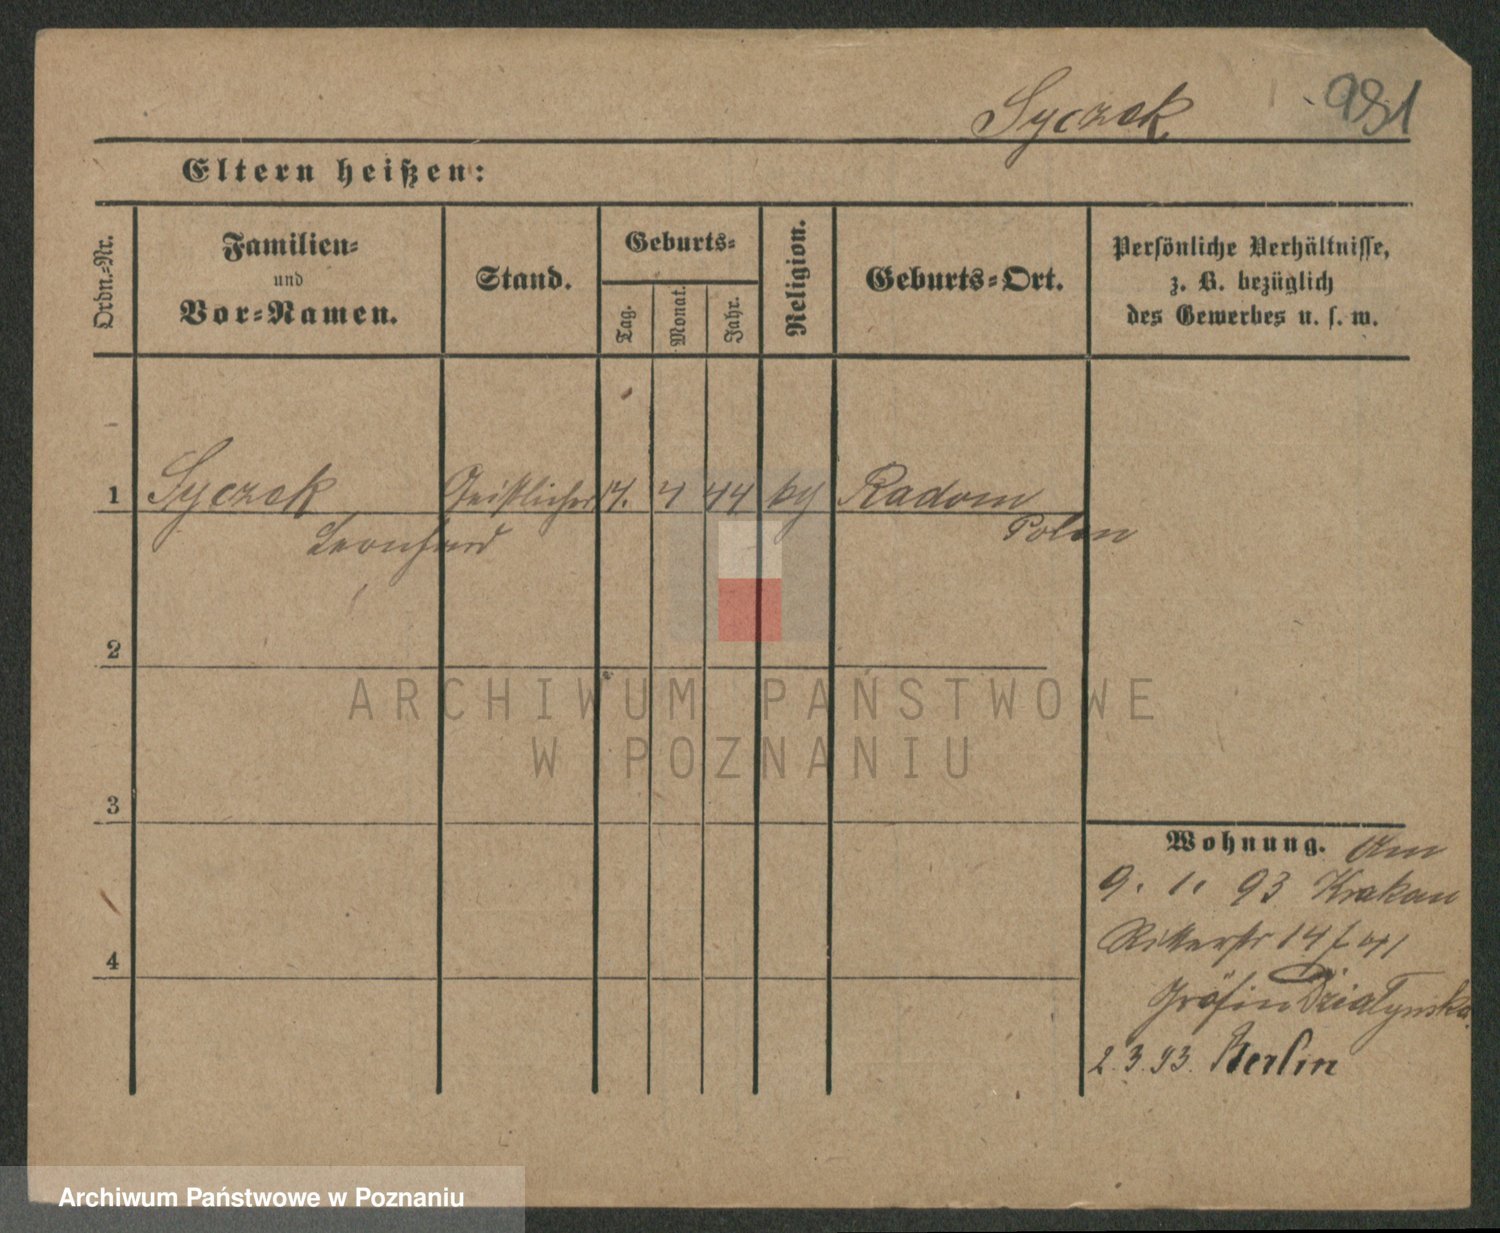 Syczek
981
Eltern heißen:
Ordn.-Nr.
Familien-
und
Vor-Namen.
Stand.
Geburts-
Tag.
Monat.
Jahr.
Religion.
Geburts-Ort.
Persönliche Verhältnisse,
z. B. bezüglich
des Gewerbes u. s. w.
1 Syczek Geistlicher 4 44 Radom
Leonhard Polen
2
3
4
Wohnung. Am
9. 1. 93 Krakau
Ritterstr 14
Gräfin Działynska
2.3.93. Berlin
ARCHIWUM PAŃSTWOWE
W POZNANIU
Archiwum Państwowe w Poznaniu